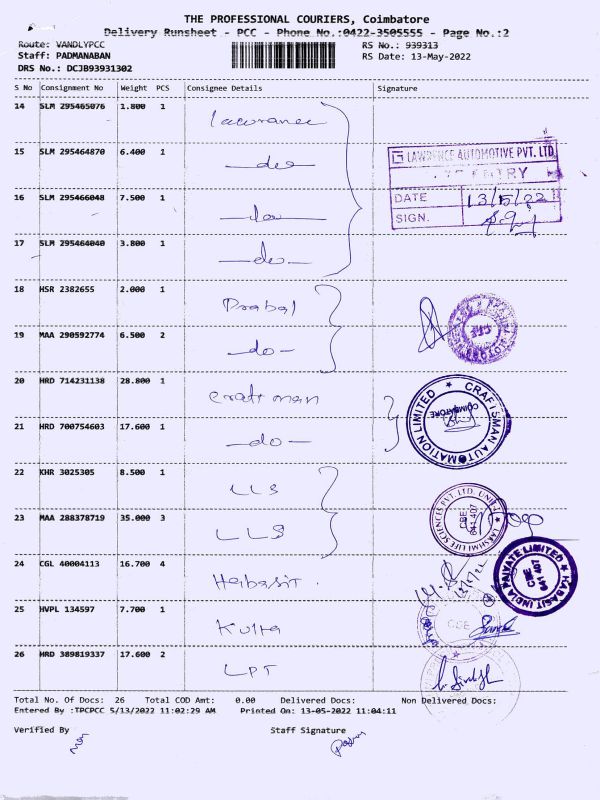 THE PROFESSIONAL COURIERS, Coimbatore
Delivery Runsheet - PCC - Phone No.:0422-3505555 - Page No.:2
Route: VANDLYPCC RS No.: 939313
Staff: PADMANABAN RS Date: 13-May-2022
DRS No.: DCJB93931302
S No Consignment No Weight PCS Consignee Details Signature
14 SLM 295465076 1.800 1 Lawrance
15 SLM 295464870 6.400 1 —do—
LAWRENCE AUTOMOTIVE PVT. LTD.
ENTRY
16 SLM 295466048 7.500 1 —do—
DATE 13/5/22
SIGN.
17 SLM 295464040 3.800 1 —do—
18 HSR 2382655 2.000 1 Prabal
19 MAA 290592774 6.500 2 —do—
20 HRD 714231138 28.800 1 Craftman
CRAFTSMAN AUTOMATION LIMITED
COIMBATORE
21 HRD 700754603 17.600 1 —do—
22 KHR 3025305 8.500 1 LLS
LAKSHMI LIFE SCIENCES PVT. LTD. UNIT-I
CBE
641 407
23 MAA 288378719 35.000 3 LLS
24 CGL 40004113 16.700 4 Habasit.
HABASIT INDIA PRIVATE LIMITED
CBE
641 407
13/5/22
25 HVPL 134597 7.700 1 Kulta
CBE
26 HRD 389819337 17.600 2 LPT
Total No. Of Docs: 26 Total COD Amt: 0.00 Delivered Docs: Non Delivered Docs:
Entered By :TPCPCC 5/13/2022 11:02:29 AM Printed On: 13-05-2022 11:04:11
Verified By Staff Signature